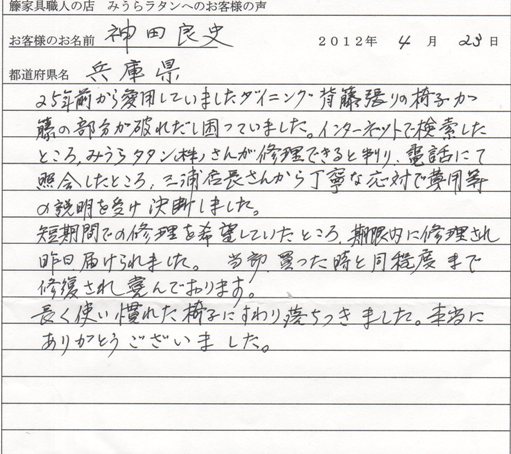 籐家具職人の店 みうらラタンへのお客様の声
お客様のお名前 神田良史 2012年 4月 23日
都道府県名 兵庫県
25年前から愛用していましたダイニング背籐張りの椅子が
籐の部分が破れだし困っていました。インターネットで検索した
ところ、みうらラタン(株)さんが修理できると判り、電話にて
照会したところ、三浦店長さんから丁寧な応対で費用等
の説明を受け決断しました。
短期間での修理を希望していたところ、期限内に修理され
昨日届けられました。 当初、買った時と同程度まで
修復され喜んでおります。
長く使い慣れた椅子にすわり落ちつきました。本当に
ありがとうございました。